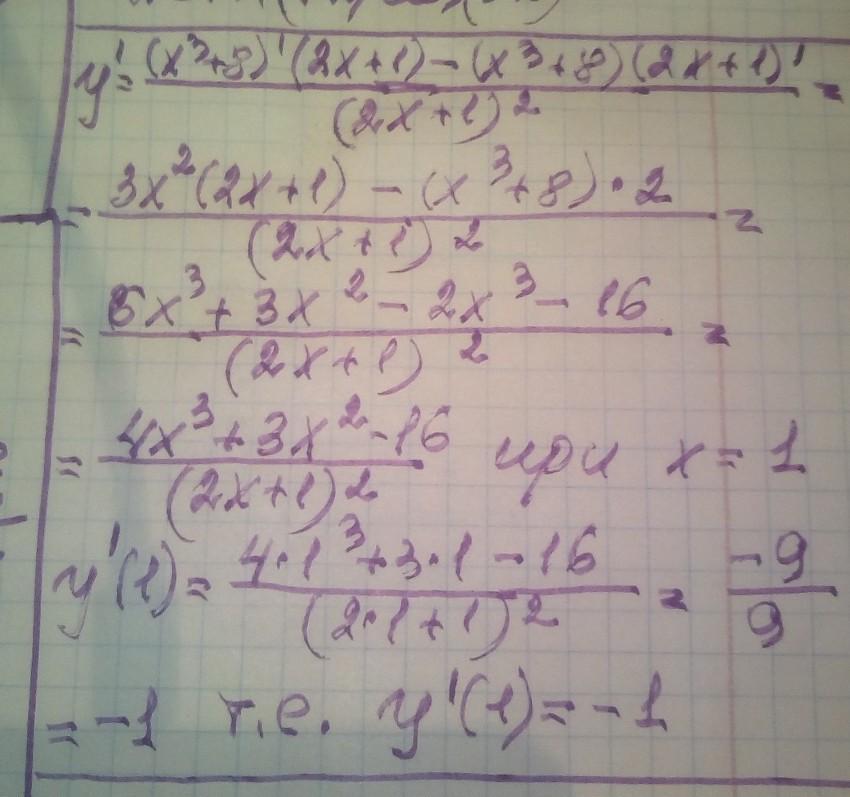 y' = (x³+8)'(2x+1) - (x³+8)(2x+1)' / (2x+1)² =
= 3x²(2x+1) - (x³+8)·2 / (2x+1)² =
= 6x³ + 3x² - 2x³ - 16 / (2x+1)² =
= 4x³ + 3x² - 16 / (2x+1)² при x = 1
y'(1) = 4·1³ + 3·1 - 16 / (2·1+1)² = -9 / 9
= -1 т.е. y'(1) = -1